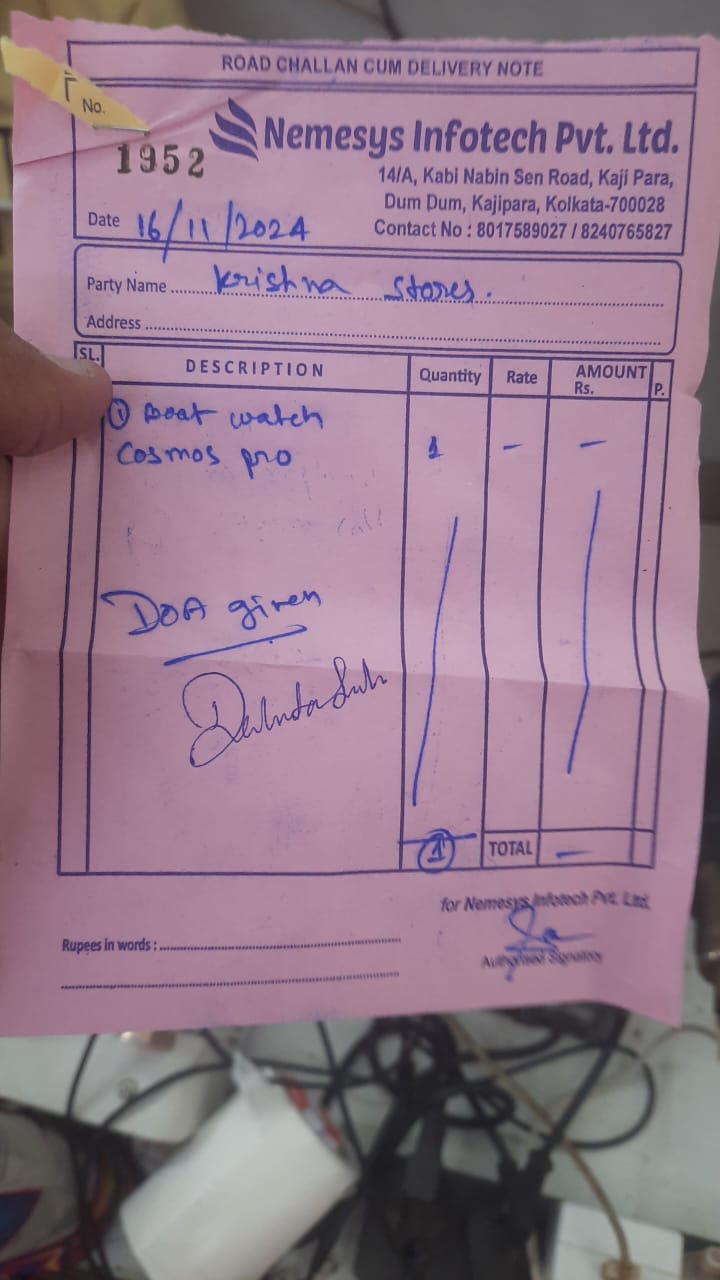 ROAD CHALLAN CUM DELIVERY NOTE
No.
1952
Nemesys Infotech Pvt. Ltd.
14/A, Kabi Nabin Sen Road, Kaji Para,
Dum Dum, Kajipara, Kolkata-700028
Contact No : 8017589027 / 8240765827
Date 16/11/2024
Party Name Krishna Stores.
Address
SL. DESCRIPTION Quantity Rate AMOUNT Rs. P.
① Boat watch
Cosmos pro 1 - -
DOA given
① TOTAL -
for Nemesys Infotech Pvt. Ltd.
Rupees in words :
Authorised Signatory